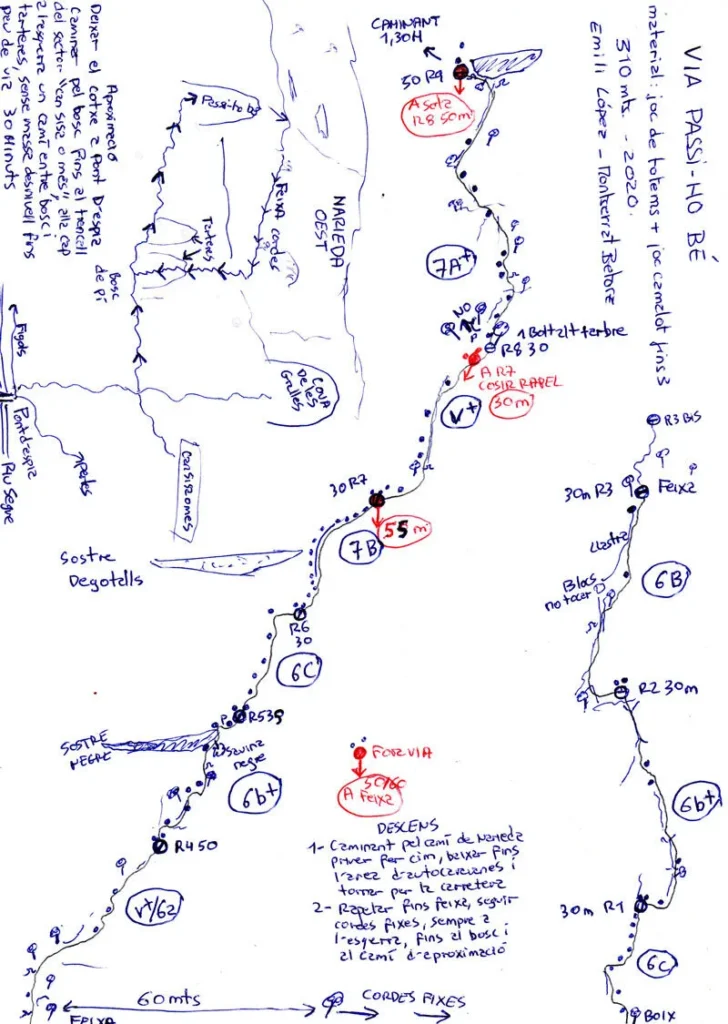 VIA PASSI-HO BÉ
material: joc de totems + joc camalot fins 3
310 mts. - 2020.
Emili López - Montserrat Betorz
Aproximació
Deixar el cotxe a Pont D'espia
Caminar pel bosc fins al trencall
del sector "can siso o més", alla cap
a l'esquerra un camí entre bosc i
tarteres, sense masse desnivell fins
peu de via 30 Minuts
Passi-ho bé
Tarteres
Feixa cordes
NARIEDA
OEST
Bosc
de pi
COVA
De les
Grelles
can siso o mes
Figols
Pont d'espia
Riu Segre
CAMINANT
1,30H
50 R9
R8 50m
7A+
NO
1 Bolt alt + arbre
R8 30
A R7
COSIR RAPEL
30m
V+
30 R7
55 m
7B
Sostre
Degotalls
R6
30
6C
R5 35
SOSTRE
NEGRE
negre
6b+
R4 50
V+/6a
FEIXA
60 mts
CORDES FIXES
FORZVIA
A Feixa
DESCENS
1- Caminant pel camí de Narieda
primer per cim, baixar fins
l'area d'autocaravanes i
tornar per la carretera
2- Rapelar fins feixa, seguir
cordes fixes, sempre a
l'esquerra, fins al bosc i
al camí d'aproximació
R3 BIS
30m R3
Feixa
Llastra
Blocs
no tocar
6B
R2 30m
6b+
30m R1
6C
BOIX